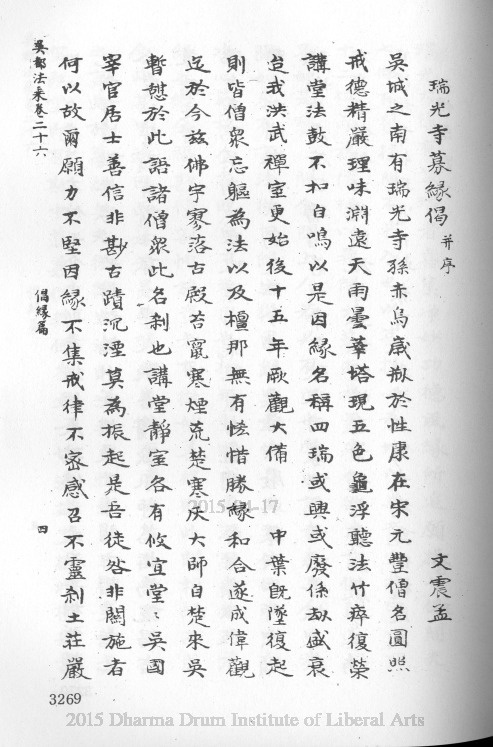 瑞光寺募緣偈 并序
文震孟
吳城之南有瑞光寺孫赤烏歲剏於性康在宋元豐僧名圓照
戒德精嚴理味淵遠天雨曇華塔現五色龜浮聽法竹瘁復榮
講堂法鼓不扣自鳴以是因緣名稱四瑞或興或廢係劫盛衰
迨我洪武禪室更始後十五年厥觀大備 中葉既墜復起
則皆僧眾忘軀為法以及檀那無有恡惜勝緣和合遂成偉觀
迄於今茲佛宇寥落古殿苔竄寒煙荒楚寒灰大師自楚來吳
暫憩於此語諸僧眾此名剎也講堂靜室各有攸宜堂〻吳國
宰官居士善信非尠古蹟沉湮莫為振起是吾徒咎非關施者
何以故爾願力不堅因緣不集戒律不密感召不靈剎土莊嚴
吳都法乘卷二十六
偈緣篇
四
3269
2015-04-17
2015 Dharma Drum Institute of Liberal Arts